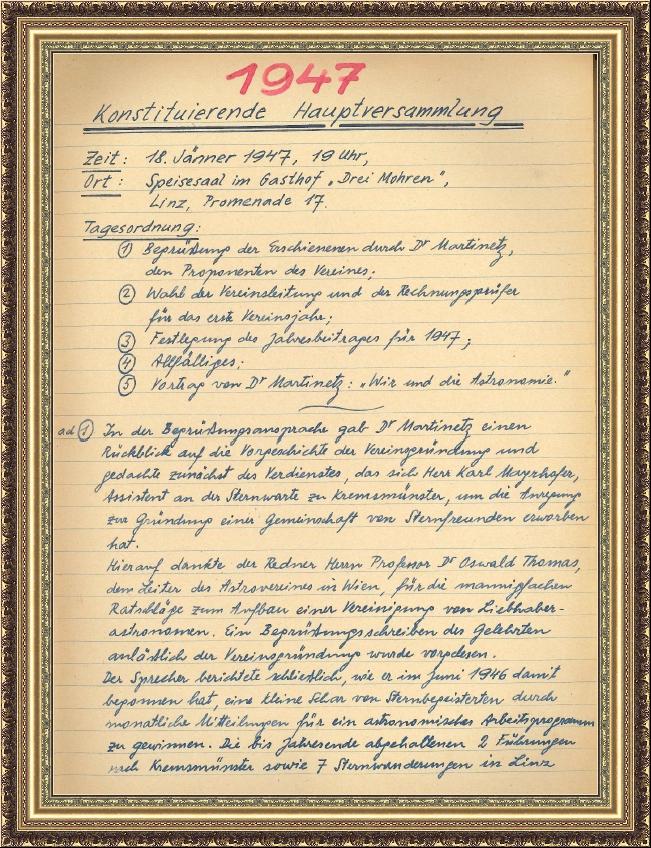 1947
Konstituierende Hauptversammlung
Zeit: 18. Jänner 1947, 19 Uhr,
Ort: Speisesaal im Gasthof „Drei Mohren",
Linz, Promenade 17.
Tagesordnung:
① Begrüßung der Erschienenen durch Dr Martinetz,
den Proponenten des Vereines;
② Wahl der Vereinsleitung und der Rechnungsprüfer
für das erste Vereinsjahr;
③ Festlegung des Jahresbeitrages für 1947;
④ Allfälliges;
⑤ Vortrag von Dr Martinetz: „Wir und die Astronomie."
ad ① In der Begrüßungsansprache gab Dr Martinetz einen
Rückblick auf die Vorgeschichte der Vereinsgründung und
gedachte zunächst des Verdienstes, das sich Herr Karl Mayrhofer,
Assistent an der Sternwarte zu Kremsmünster, um die Anregung
zur Gründung einer Gemeinschaft von Sternfreunden erworben
hat.
Hierauf dankte der Redner Herrn Professor Dr Oswald Thomas,
dem Leiter des Astrovereines in Wien, für die mannigfachen
Ratschläge zum Aufbau einer Vereinigung von Liebhaber-
astronomen. Ein Begrüßungsschreiben des Gelehrten
anläßlich der Vereinsgründung wurde vorgelesen.
Der Sprecher berichtete schließlich, wie er im Juni 1946 damit
begonnen hat, eine kleine Schar von Sternbegeisterten durch
monatliche Mitteilungen für ein astronomisches Arbeitsprogramm
zu gewinnen. Die bis Jahresende abgehaltenen 2 Führungen
nach Kremsmünster sowie 7 Sternwanderungen in Linz